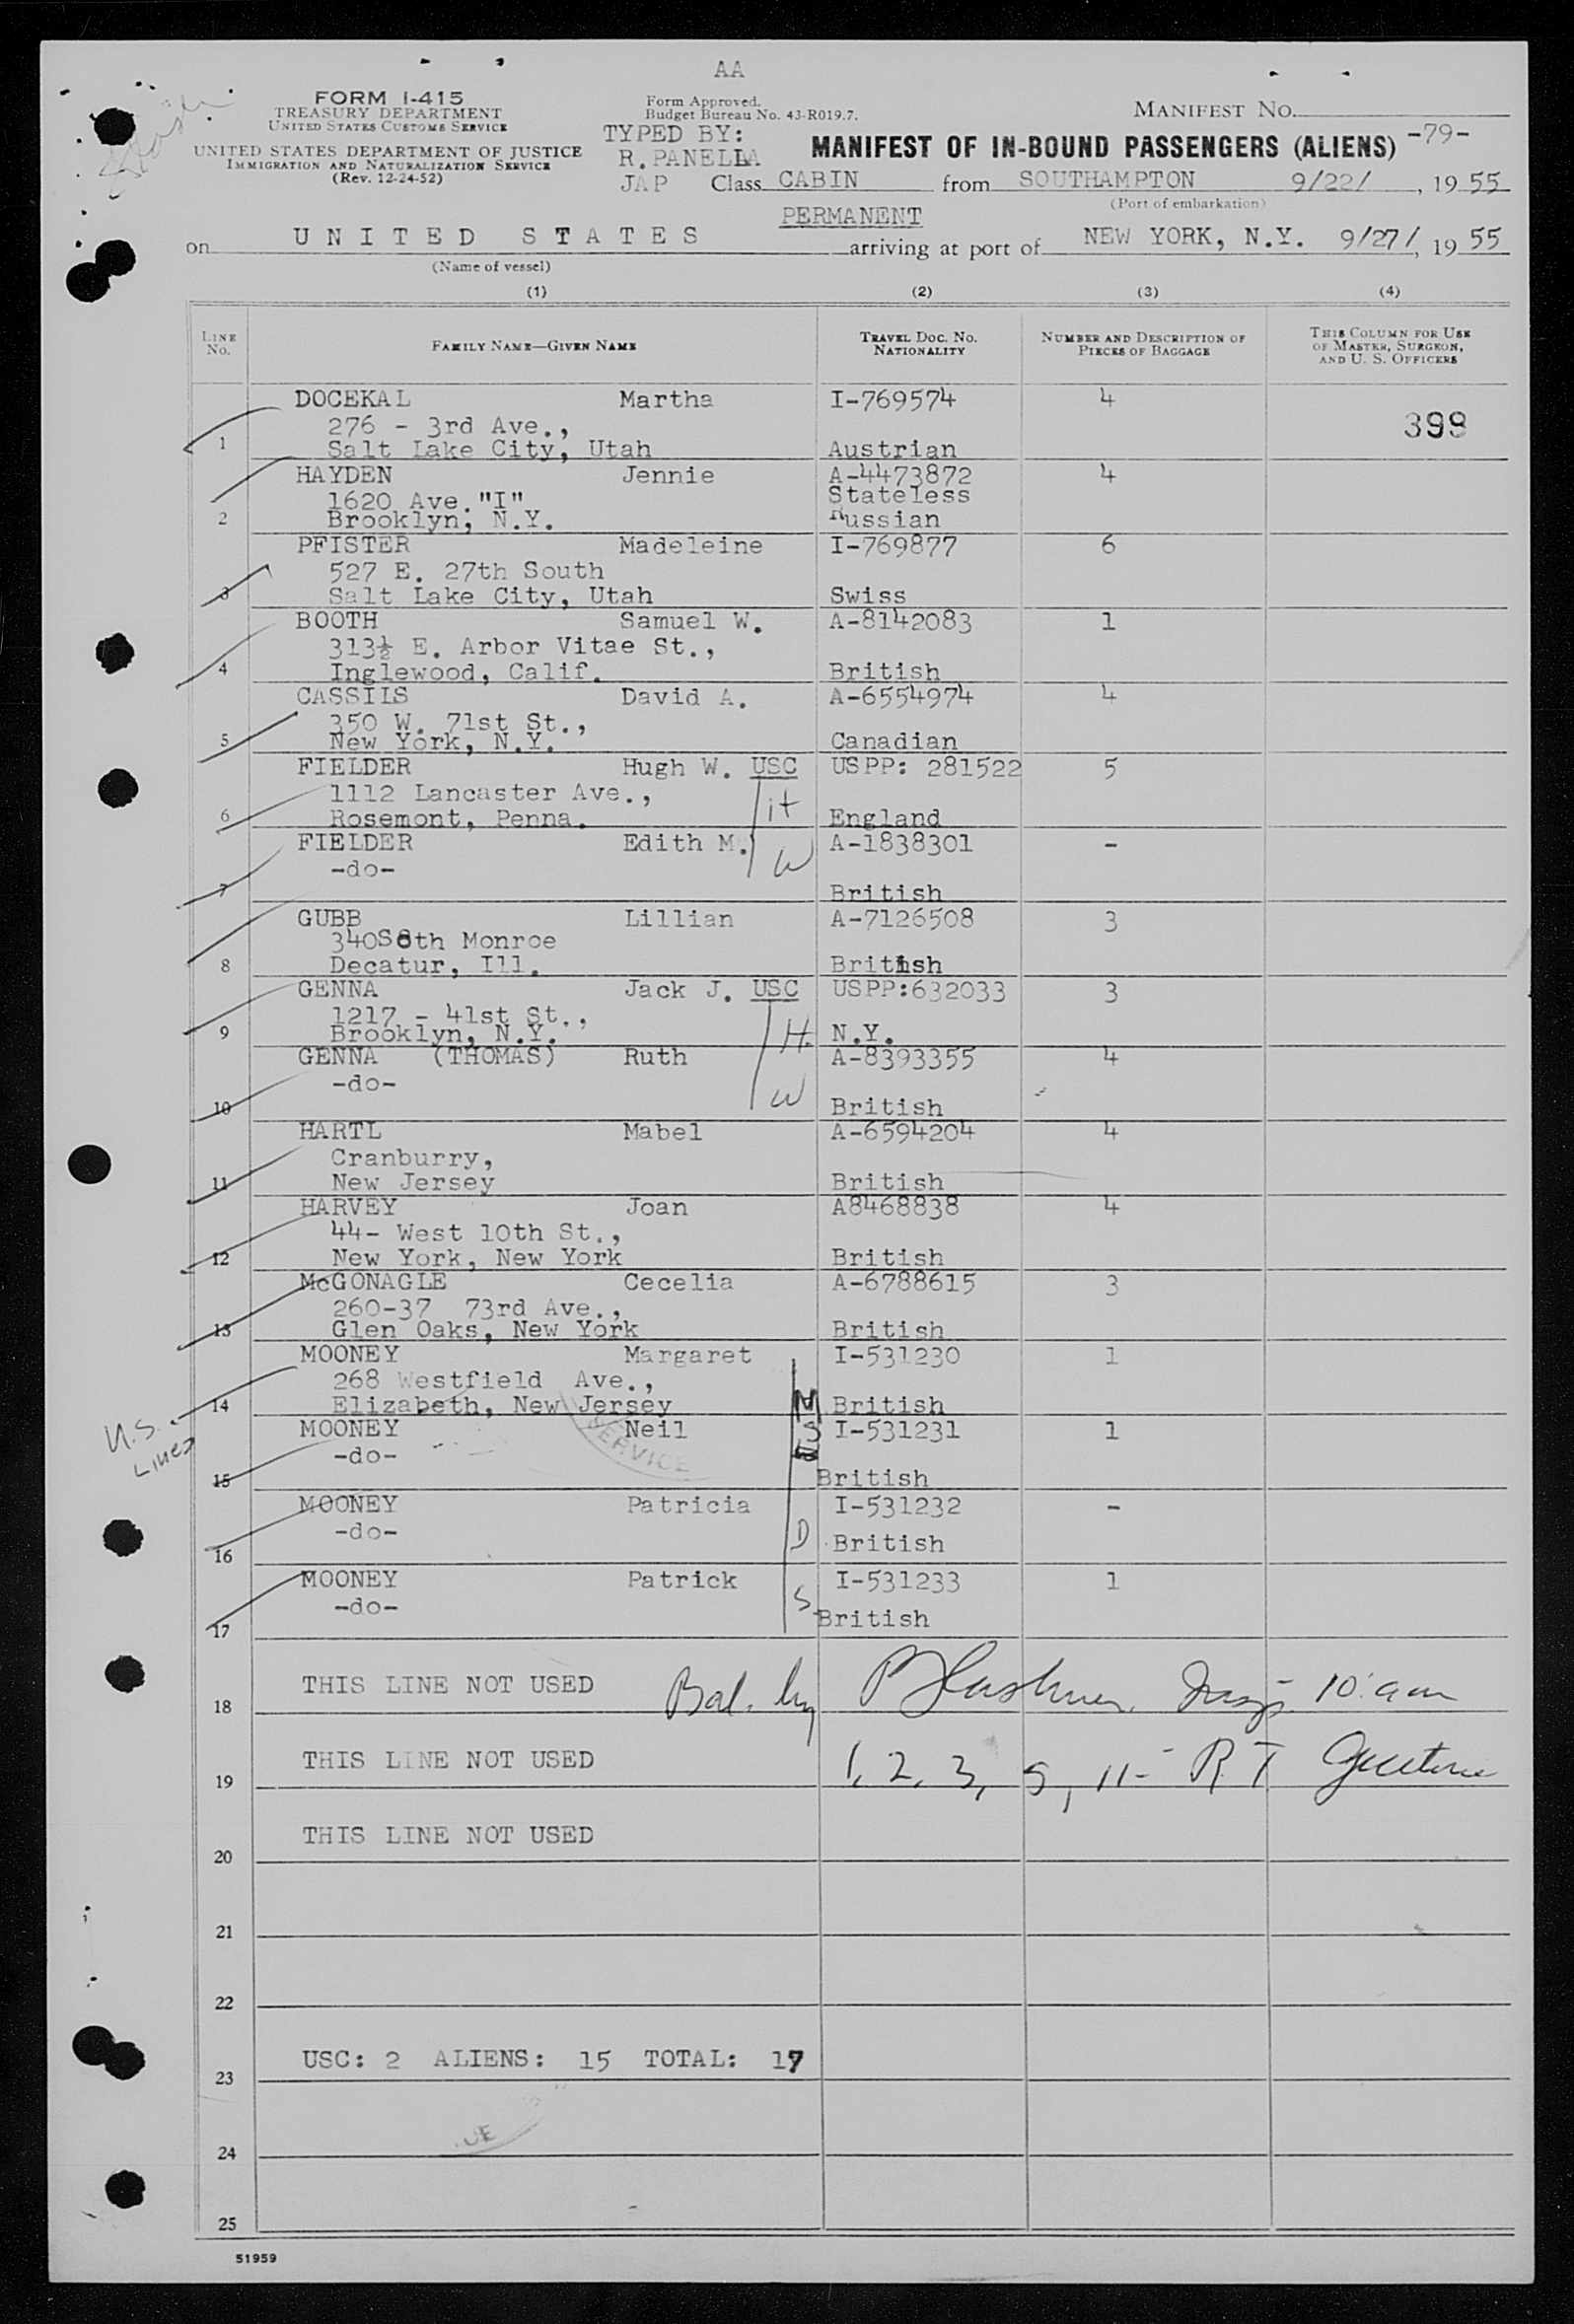 AA
FORM I-415
TREASURY DEPARTMENT
UNITED STATES CUSTOMS SERVICE
UNITED STATES DEPARTMENT OF JUSTICE
IMMIGRATION AND NATURALIZATION SERVICE
(Rev. 12-24-52)
Form Approved.
Budget Bureau No. 43-R019.7.
TYPED BY:
R. PANELLA
JAP
MANIFEST NO.
MANIFEST OF IN-BOUND PASSENGERS (ALIENS) -79-
Class CABIN from SOUTHAMPTON 9/22/, 19 55
(Port of embarkation)
PERMANENT
on UNITED STATES arriving at port of NEW YORK, N.Y. 9/27/, 19 55
(Name of vessel)
(1) (2) (3) (4)
LINE No.
FAMILY NAME—GIVEN NAME
TRAVEL DOC. NO. NATIONALITY
NUMBER AND DESCRIPTION OF PIECES OF BAGGAGE
THIS COLUMN FOR USE OF MASTER, SURGEON, AND U. S. OFFICERS
DOCEKAL Martha I-769574 4
276 - 3rd Ave., 399
1 Salt Lake City, Utah Austrian
HAYDEN Jennie A-4473872 4
1620 Ave. "I" Stateless
2 Brooklyn, N.Y. Russian
PFISTER Madeleine I-769877 6
527 E. 27th South
3 Salt Lake City, Utah Swiss
BOOTH Samuel W. A-8142083 1
313½ E. Arbor Vitae St.,
4 Inglewood, Calif. British
CASSILS David A. A-6554974 4
350 W. 71st St.,
5 New York, N.Y. Canadian
FIELDER Hugh W. USC USPP: 281522 5
1112 Lancaster Ave., H
6 Rosemont, Penna. England
FIELDER Edith M. A-1838301 -
-do- W
7 British
GUBB Lillian A-7126508 3
340 Soth Monroe
8 Decatur, Ill. British
GENNA Jack J. USC USPP:632033 3
1217 - 41st St.,
9 Brooklyn, N.Y. H. N.Y.
GENNA (THOMAS) Ruth A-8393355 4
-do- W
10 British
HARTL Mabel A-6594204 4
Cranburry,
11 New Jersey British
HARVEY Joan A8468838 4
44- West 10th St.,
12 New York, New York British
McGONAGLE Cecelia A-6788615 3
260-37 73rd Ave.,
13 Glen Oaks, New York British
MOONEY Margaret I-531230 1
268 Westfield Ave.,
14 Elizabeth, New Jersey M British
U.S. Lines
MOONEY Neil S I-531231 1
-do- SERVICE
15 British
MOONEY Patricia I-531232 -
-do- D British
16
MOONEY Patrick I-531233 1
-do- S British
17
18 THIS LINE NOT USED Bal. by 10 am
19 THIS LINE NOT USED 1, 2, 3, 9, 11- R T
20 THIS LINE NOT USED
21
22
23 USC: 2 ALIENS: 15 TOTAL: 17
24
25
51959